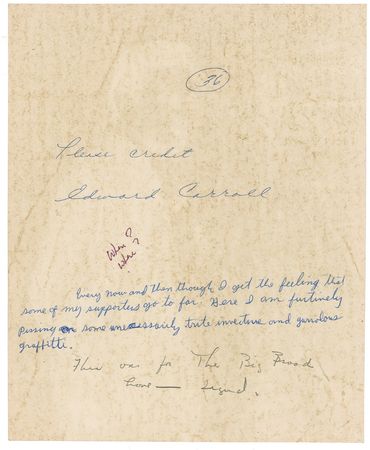 36
Please credit
Edward Carroll
when?
where?
Every now and then though I get the feeling that
some of my supporters go to far. Here I am furtively
pissing on some unecessarily trite invective and garrulous
graffitti.
This one for The Big Brood